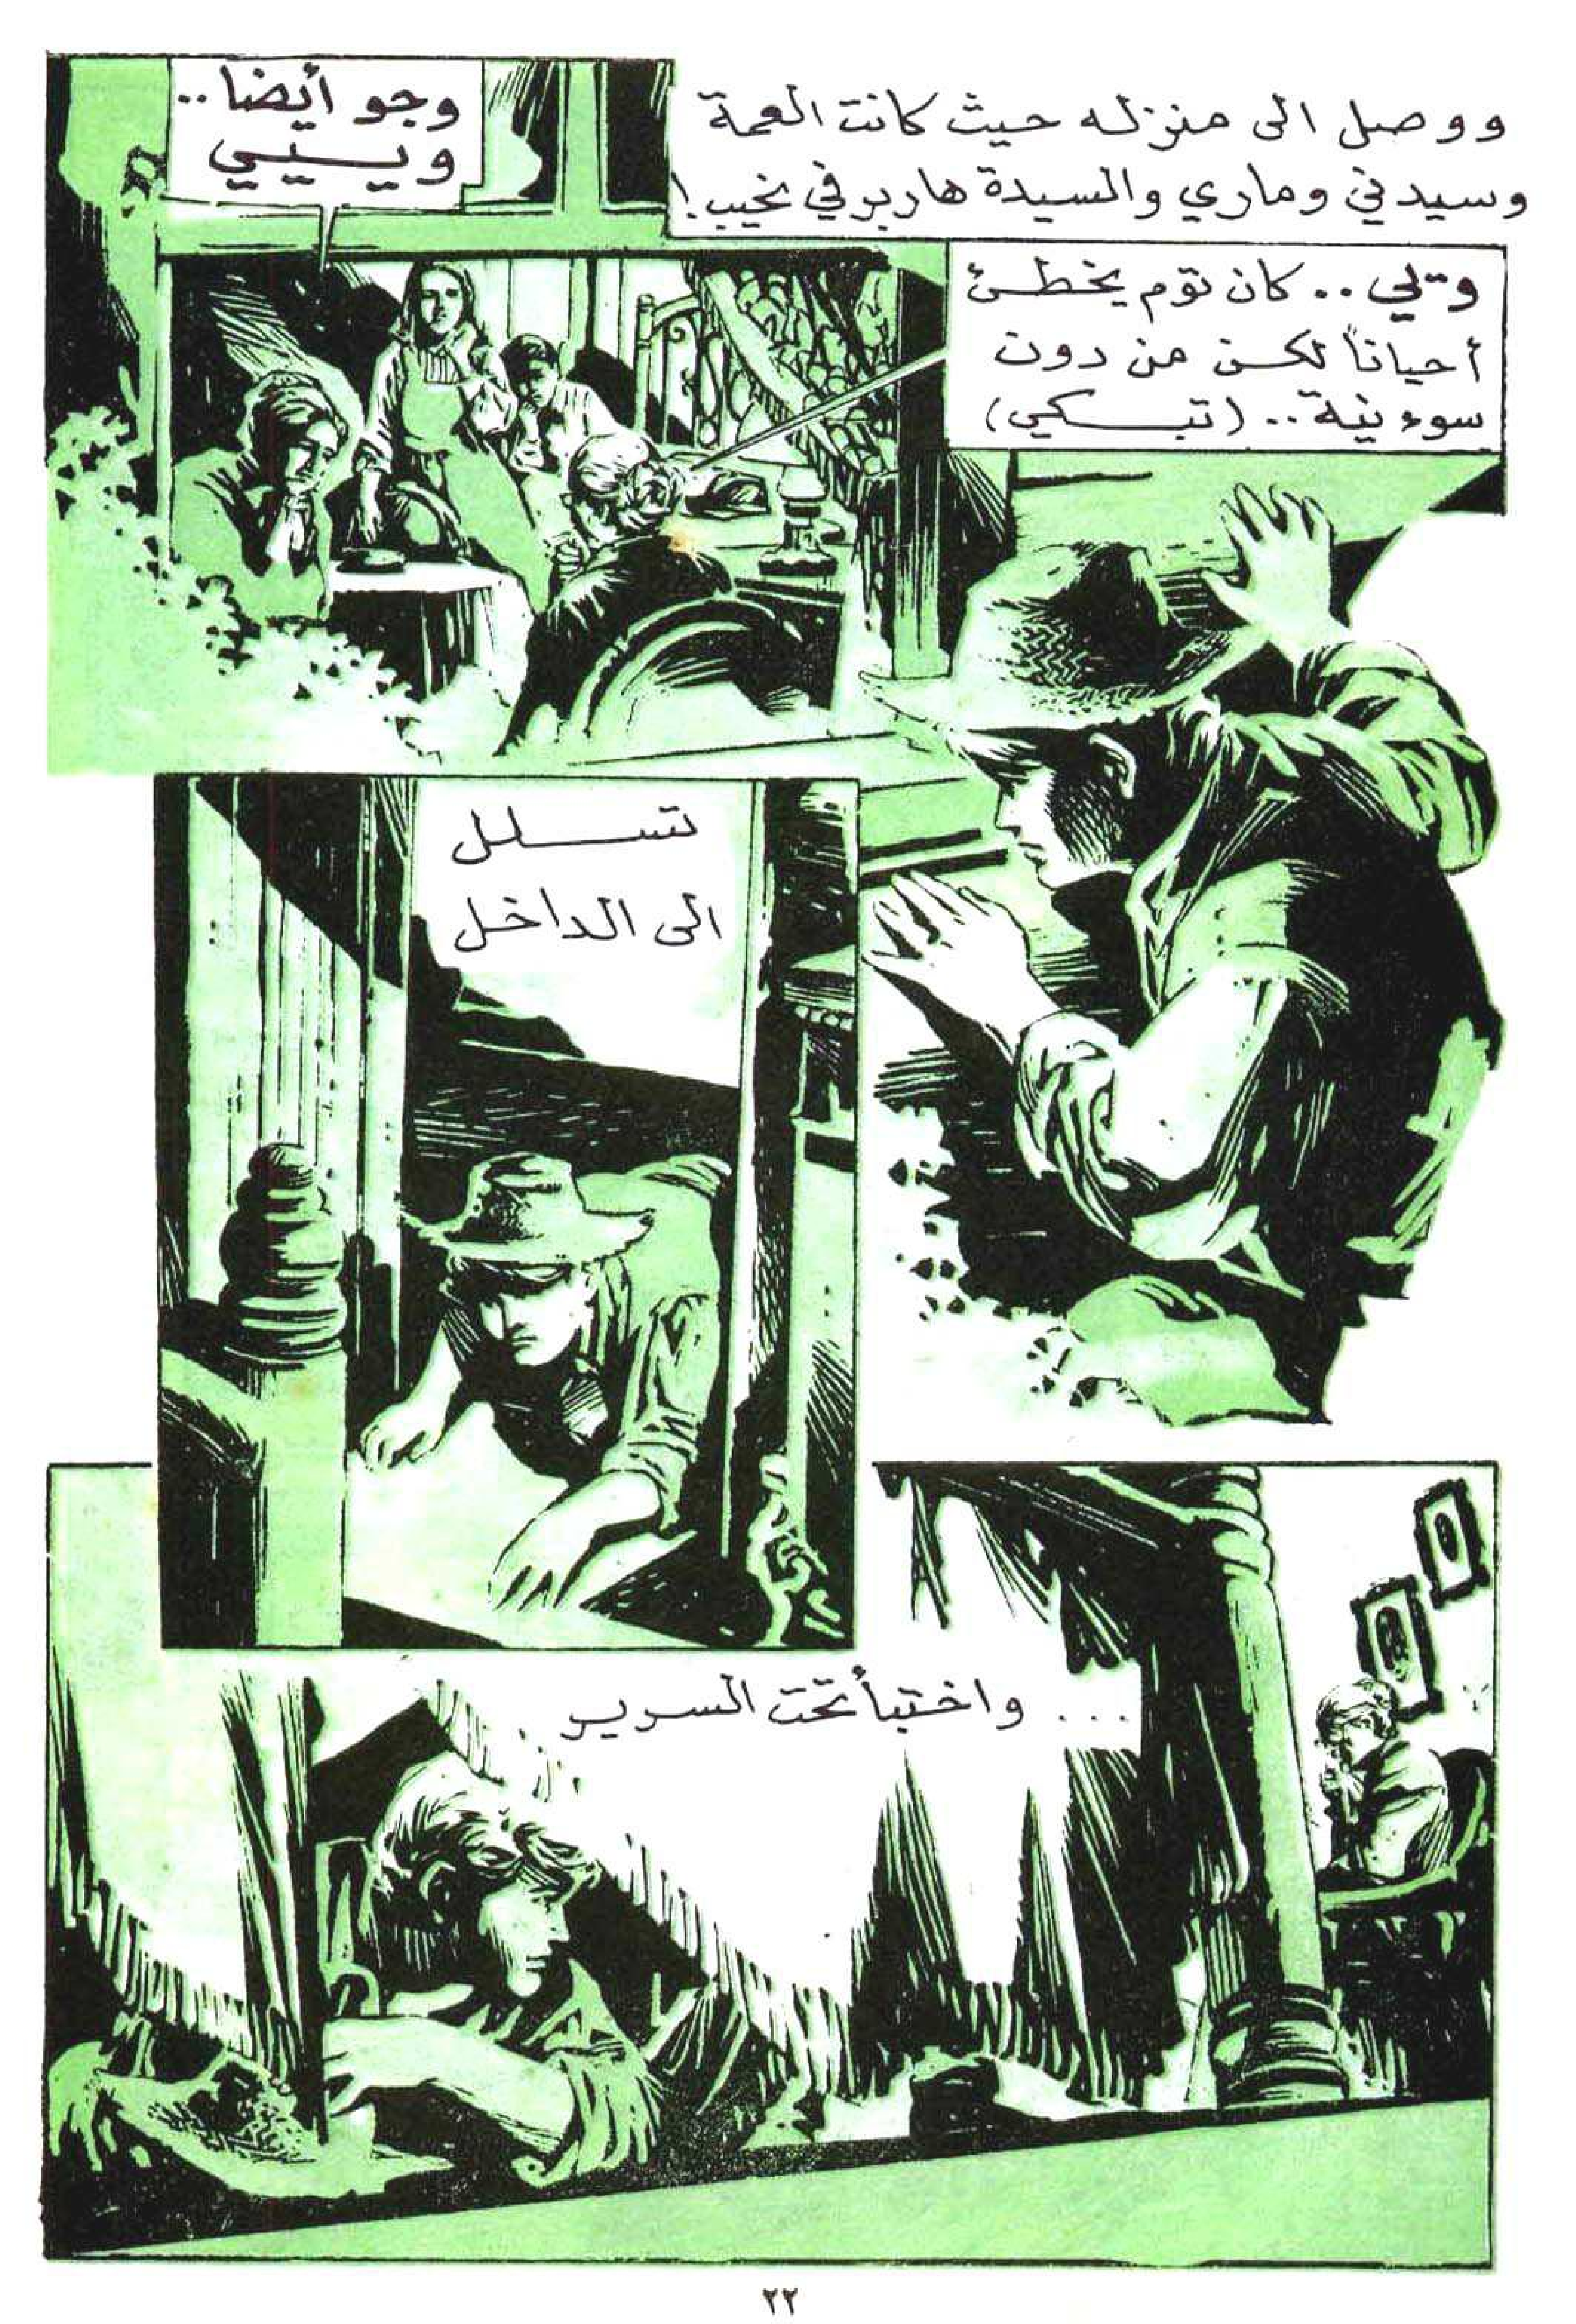 ووصل الى منزله حيث كانت العمة
وسيدني وماري والسيدة هاربر في نحيب!
ويلي.. كان توم يخطئ
أحياناً لكن من دون
سوء نية.. (تبكي)
وجو أيضا..
ويييي
تسلل
الى الداخل
... واختبأ تحت السرير
٢٢